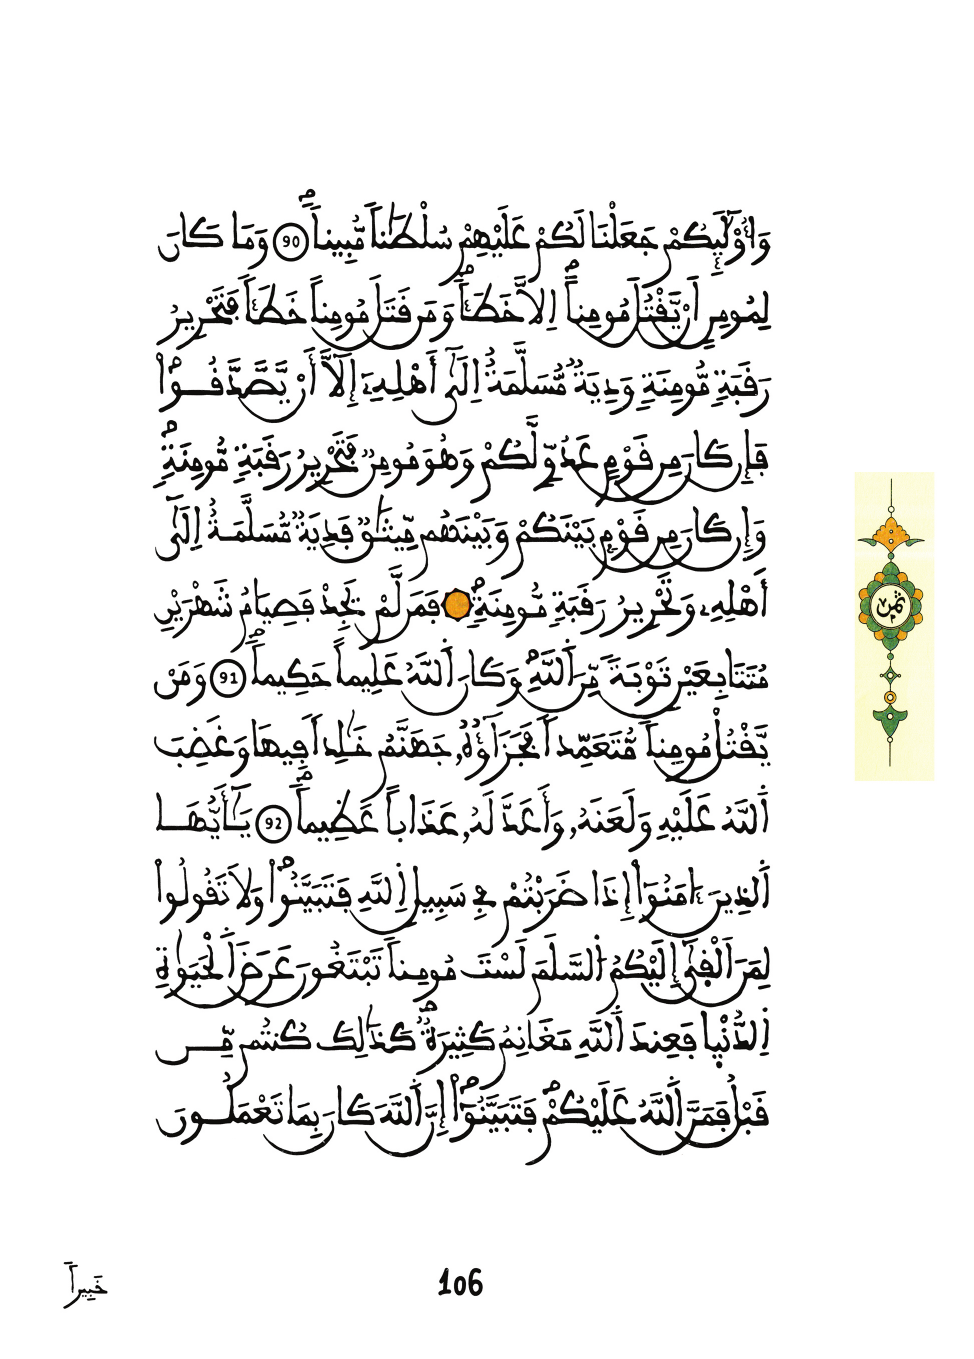 وَأُوْلَٰٓئِكُمْ جَعَلْنَا لَكُمْ عَلَيْهِمْ سُلْطَٰناً مُّبِيناً 90 وَمَا كَانَ
لِمُومِنٍ أَنْ يَّقْتُلَ مُومِناً إِلاَّ خَطَـٔاً وَمَن قَتَلَ مُومِناً خَطَـٔاً فَتَحْرِيرُ
رَقَبَةٍ مُّومِنَةٍ وَدِيَةٌ مُّسَلَّمَةٌ إِلَىٰٓ أَهْلِهِۦٓ إِلَّآ أَنْ يَّصَّدَّقُواْ
فَإِن كَانَ مِن قَوْمٍ عَدُوٍّ لَّكُمْ وَهُوَ مُومِنٌ فَتَحْرِيرُ رَقَبَةٍ مُّومِنَةٍ
وَإِن كَانَ مِن قَوْمٍ بَيْنَكُمْ وَبَيْنَهُم مِّيثَٰقٌ فَدِيَةٌ مُّسَلَّمَةٌ إِلَىٰٓ
أَهْلِهِۦ وَتَحْرِيرُ رَقَبَةٍ مُّومِنَةٍ فَمَن لَّمْ يَجِدْ فَصِيَامُ شَهْرَيْنِ
مُتَتَابِعَيْنِ تَوْبَةً مِّنَ اَللَّهِ وَكَانَ اَللَّهُ عَلِيماً حَكِيماً 91 وَمَنْ
يَّقْتُلْ مُومِناً مُّتَعَمِّداً فَجَزَآؤُهُۥ جَهَنَّمُ خَٰلِداً فِيهَا وَغَضِبَ
اَللَّهُ عَلَيْهِ وَلَعَنَهُۥ وَأَعَدَّ لَهُۥ عَذَاباً عَظِيماً 92 يَٰٓأَيُّهَا
اَلذِينَ ءَامَنُوٓاْ إِذَا ضَرَبْتُمْ فِے سَبِيلِ اِللَّهِ فَتَبَيَّنُواْ وَلاَ تَقُولُواْ
لِمَنَ اَلْقَىٰٓ إِلَيْكُمُ اُلسَّلَمَ لَسْتَ مُومِناً تَبْتَغُونَ عَرَضَ اَلْحَيَوٰةِ
اِلدُّنْيَا فَعِندَ اَللَّهِ مَغَانِمُ كَثِيرَةٌ كَذَٰلِكَ كُنتُم مِّن
قَبْلُ فَمَنَّ اَللَّهُ عَلَيْكُمْ فَتَبَيَّنُوٓاْ إِنَّ اَللَّهَ كَانَ بِمَا تَعْمَلُونَ
ثمن
خَبِيراً
106